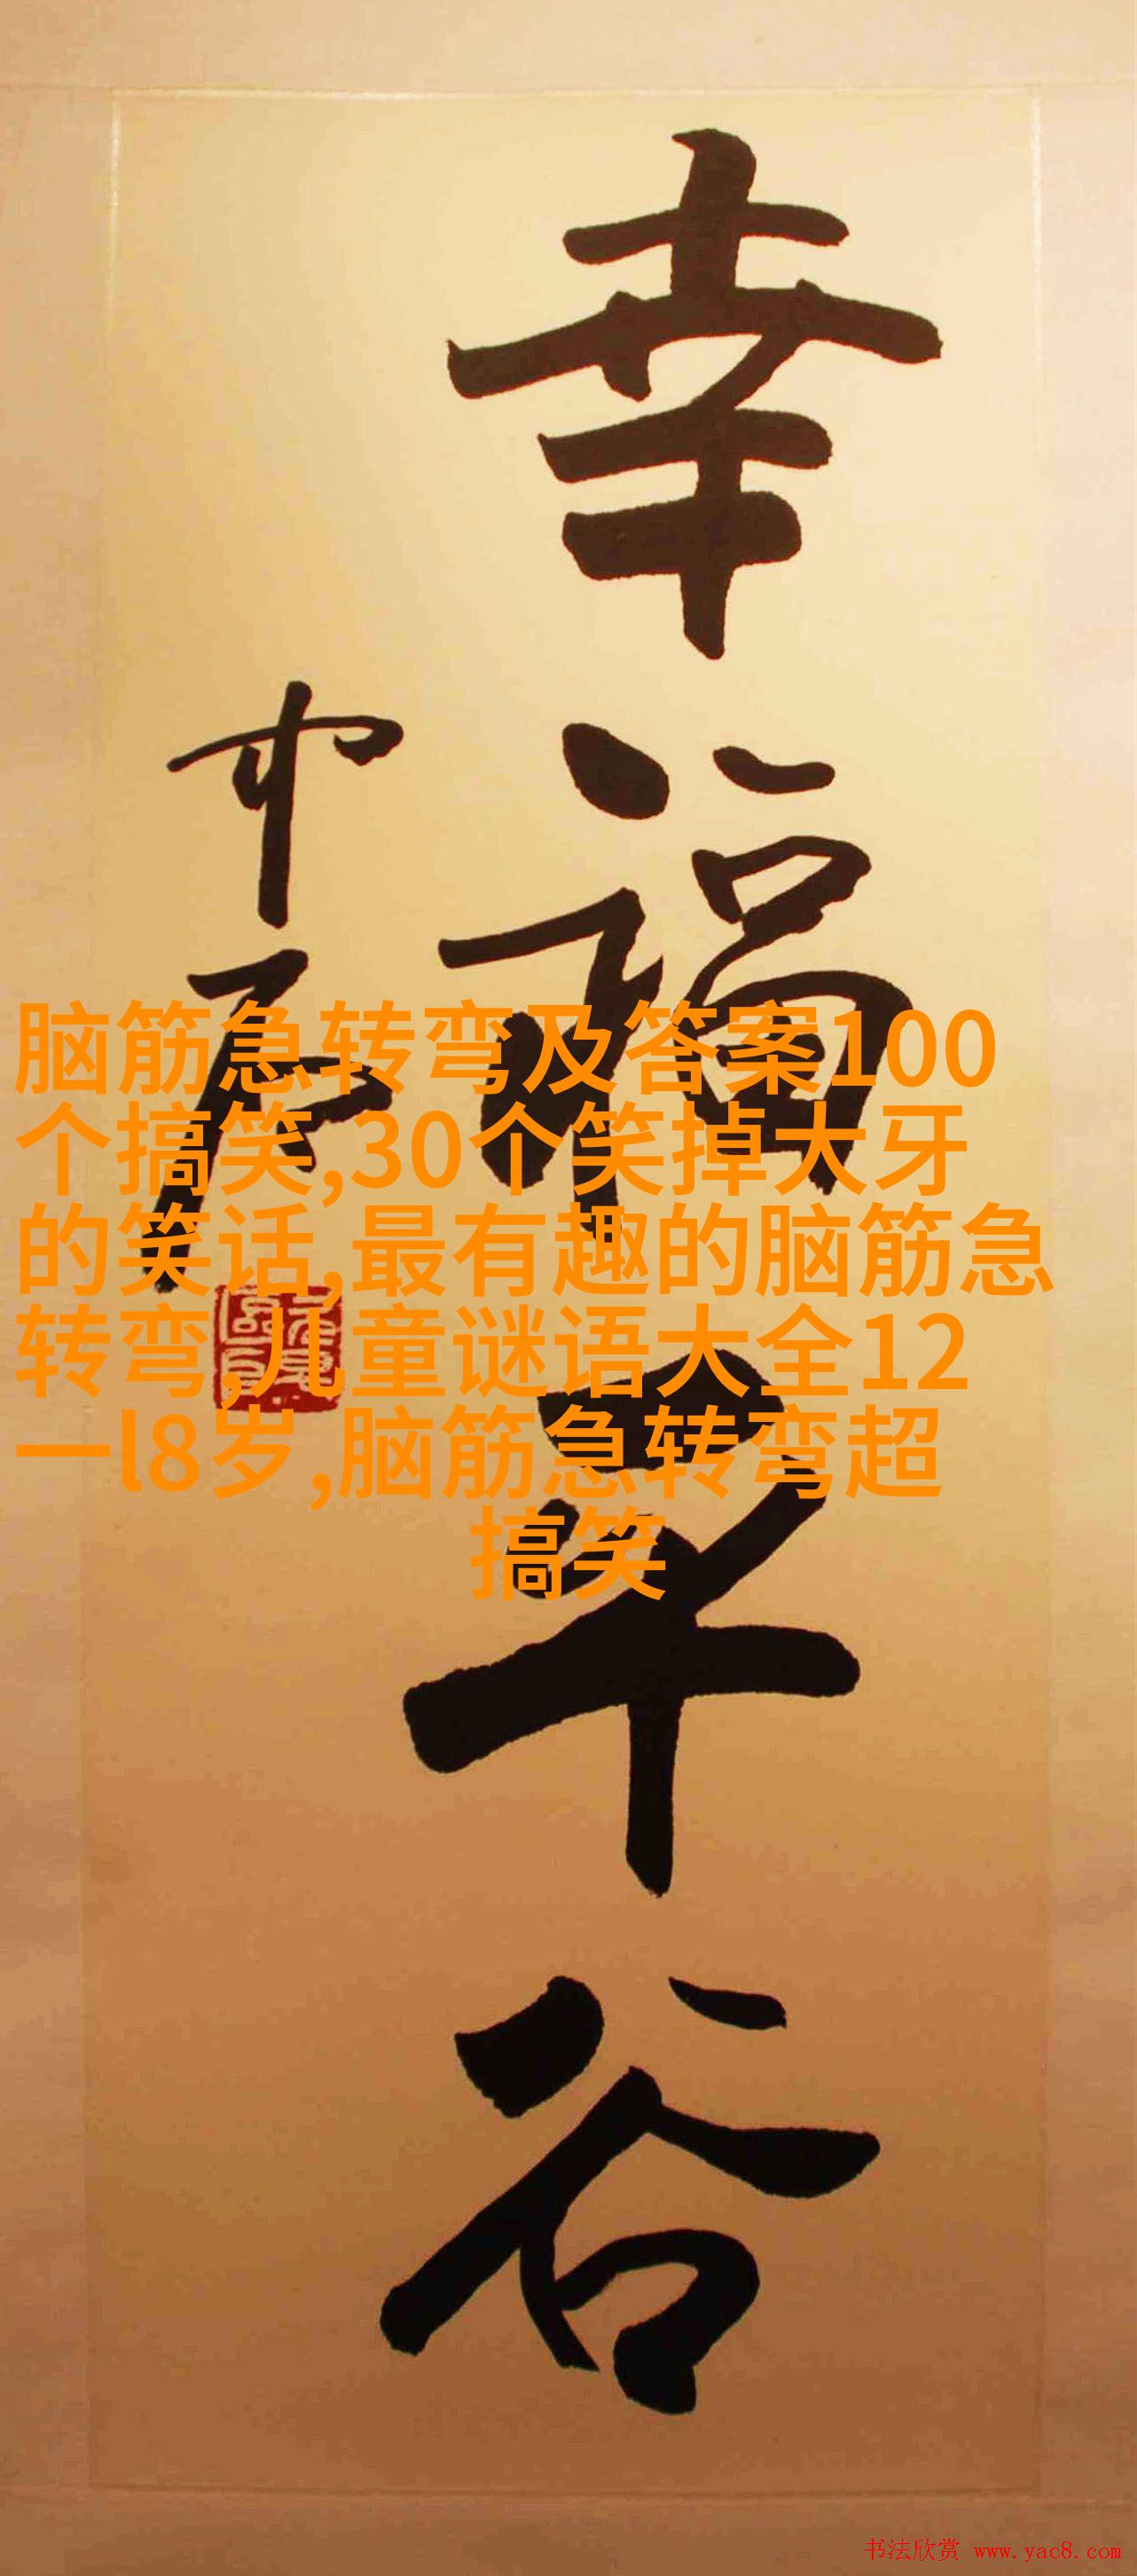 幸福平谷
中石
脑筋急转弯及答案100
个搞笑,30个笑掉大牙
的笑话,最有趣的脑筋急
转弯,儿童谜语大全12
一l8岁,脑筋急转弯超
搞笑
书法欣赏 www.yac8.com